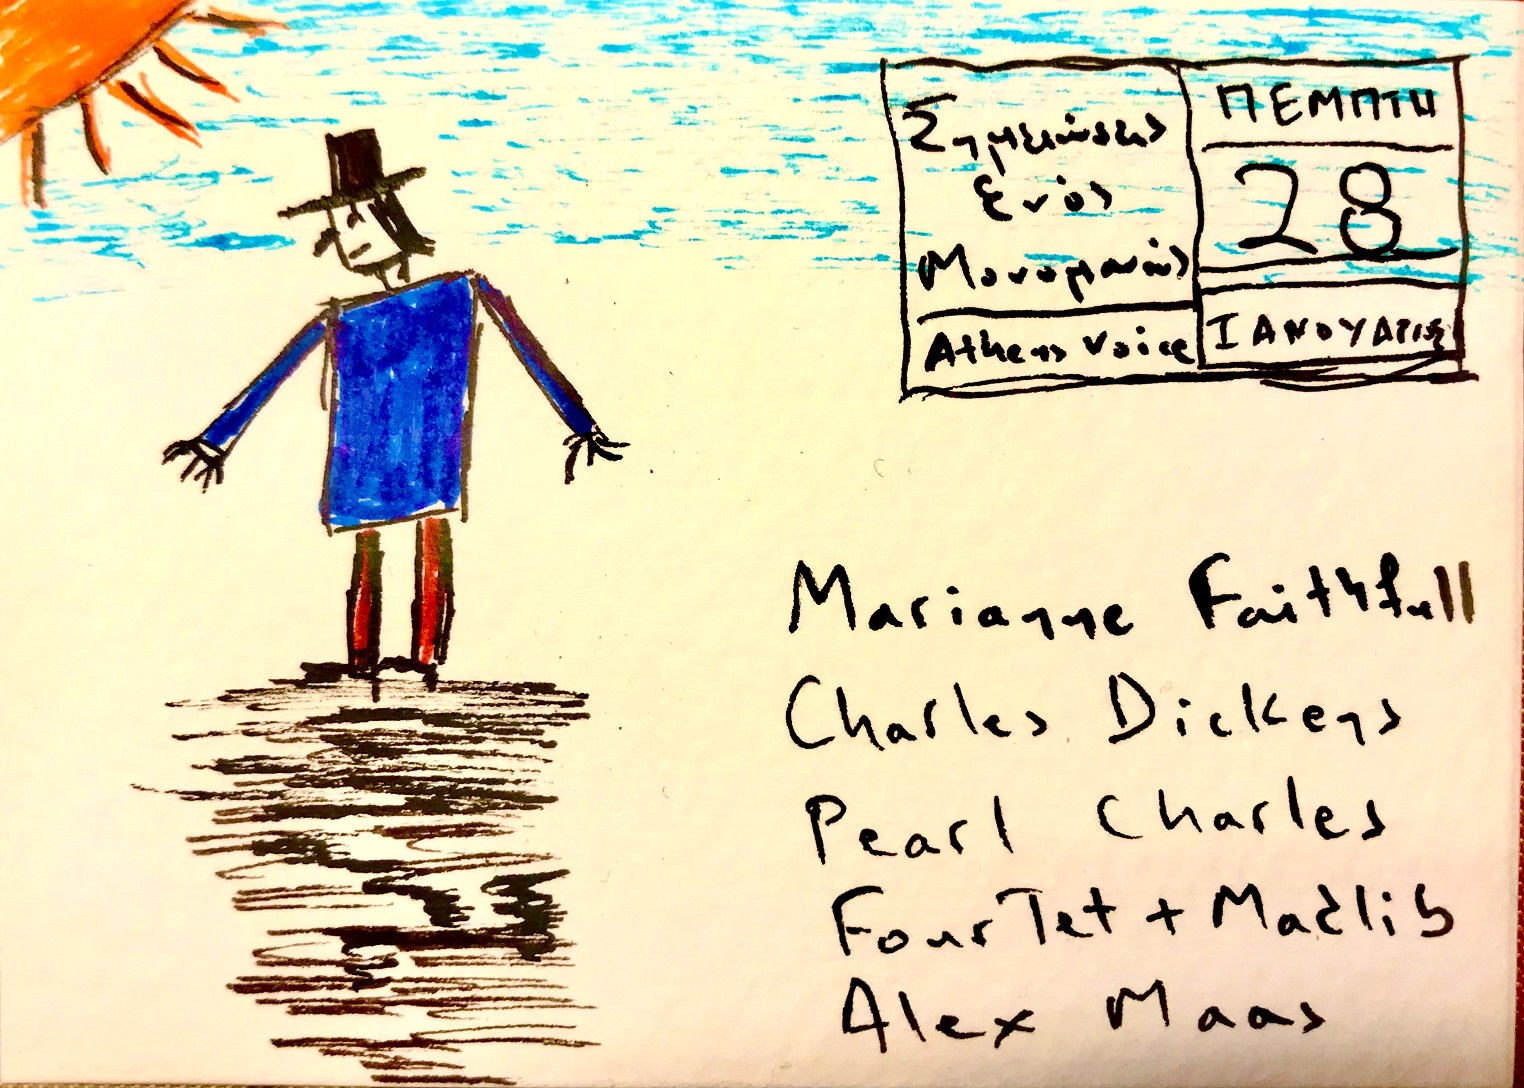 Σημειώσεις
ενός
Μονομανούς
Athens Voice
ΠΕΜΠΤΗ
28
ΙΑΝΟΥΑΡΙΟΣ
Marianne Faithfull
Charles Dickens
Pearl Charles
Four Tet + Madlib
Alex Maas